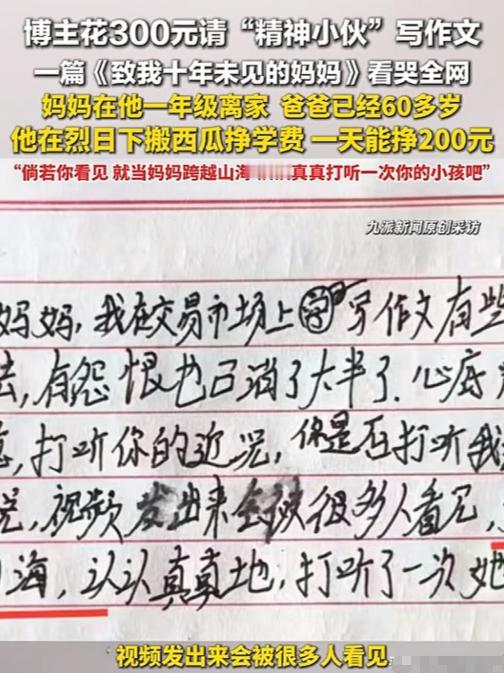 博主花300元请“精神小伙”写作文
一篇《致我十年未见的妈妈》看哭全网
妈妈在他一年级离家 爸爸已经60多岁
他在烈日下搬西瓜挣学费 一天能挣200元
“倘若你看见 就当妈妈跨越山海 真真打听一次你的小孩吧”
九派新闻原创采访
妈妈,我在交易市场上 写作文有些
去,有怨恨也已消了大半了.心底
打听你的近况,你是否打听我
视频发出来会被很多人看见,
海,认认真真地,打听了一次她
视频发出来会被很多人看见